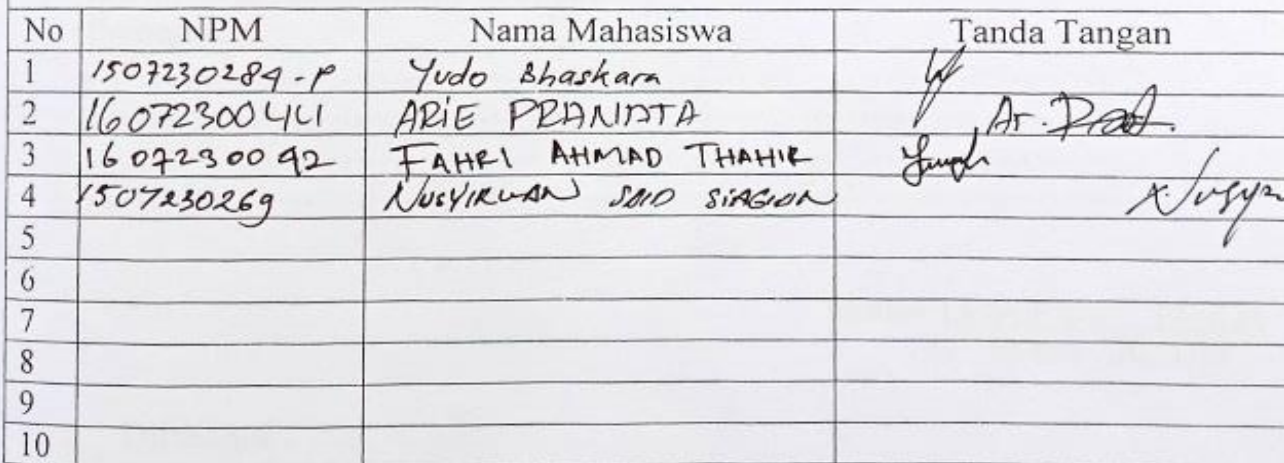 No NPM Nama Mahasiswa Tanda Tangan
1 1507230284-P Yudo Bhaskara
2 1607230041 ARIE PRANATA Ar.
3 1607230042 FAHRI AHMAD THAHIR
4 1507230269 NUSYIRWAN SAID SIAGION
5
6
7
8
9
10